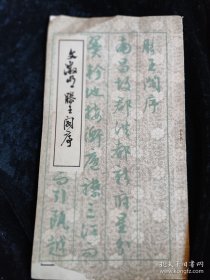 文徵明滕王阁序
滕王阁序
南昌故郡洪都新府星分
翼轸地接衡庐襟三江而